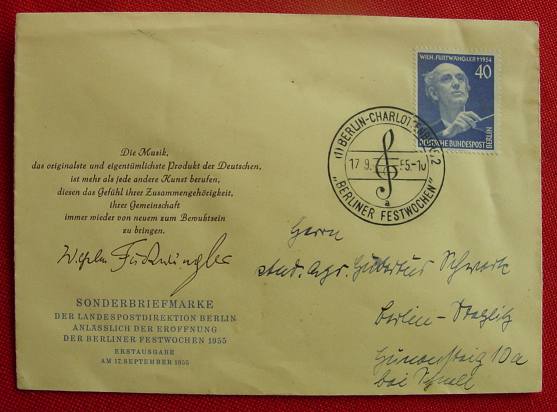 WILH. FURTWÄNGLER †1954
40
DEUTSCHE BUNDESPOST
BERLIN
(1) BERLIN-CHARLOTTENBURG 2
17.9. 55.-10
"BERLINER FESTWOCHEN"
a
Die Musik,
das originalste und eigentümlichste Produkt der Deutschen,
ist mehr als jede andere Kunst berufen,
diesen das Gefühl ihrer Zusammengehörigkeit,
ihrer Gemeinschaft
immer wieder von neuem zum Bewußtsein
zu bringen.
Wilhelm Furtwängler
SONDERBRIEFMARKE
DER LANDESPOSTDIREKTION BERLIN
ANLÄSSLICH DER EROFFNUNG
DER BERLINER FESTWOCHEN 1955
ERSTAUSGABE
AM 17. SEPTEMBER 1955
Herrn
stud. agr. Hubertus
Berlin - Steglitz
10a
bei